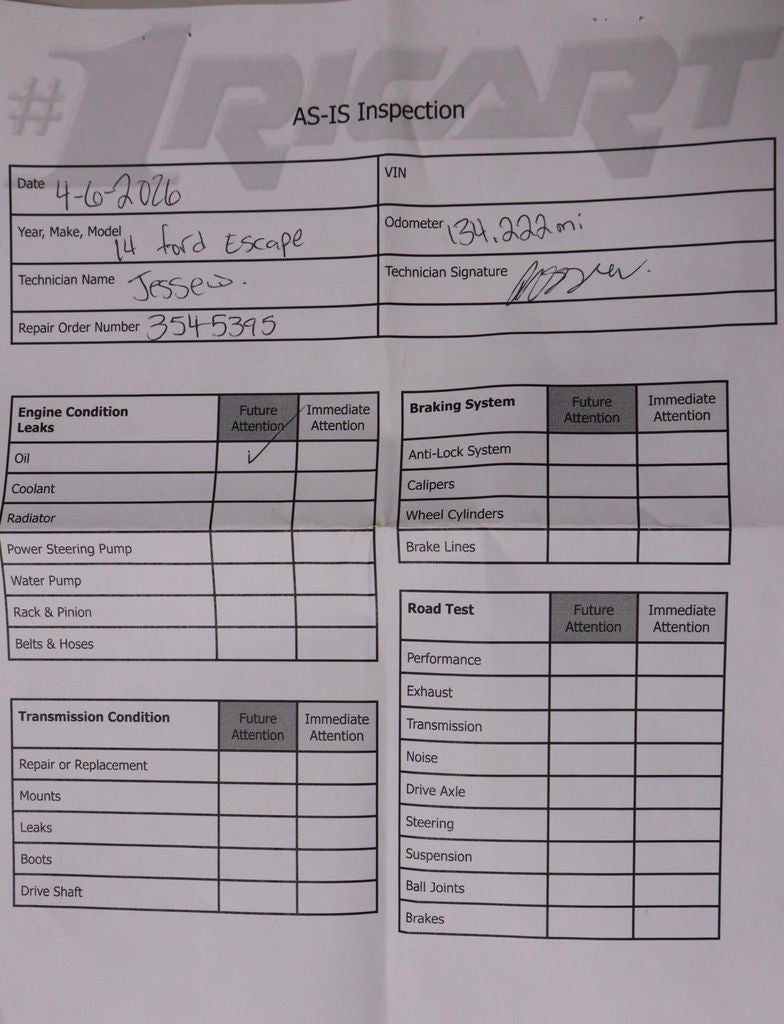 #1RICART
AS-IS Inspection
Date 4-6-2026
VIN
Year, Make, Model 14 ford Escape
Odometer 134.222mi
Technician Name Jessew.
Technician Signature
Repair Order Number 3545395
Engine Condition Leaks
Future Attention
Immediate Attention
Oil ✓
Coolant
Radiator
Power Steering Pump
Water Pump
Rack & Pinion
Belts & Hoses
Transmission Condition
Future Attention
Immediate Attention
Repair or Replacement
Mounts
Leaks
Boots
Drive Shaft
Braking System
Future Attention
Immediate Attention
Anti-Lock System
Calipers
Wheel Cylinders
Brake Lines
Road Test
Future Attention
Immediate Attention
Performance
Exhaust
Transmission
Noise
Drive Axle
Steering
Suspension
Ball Joints
Brakes